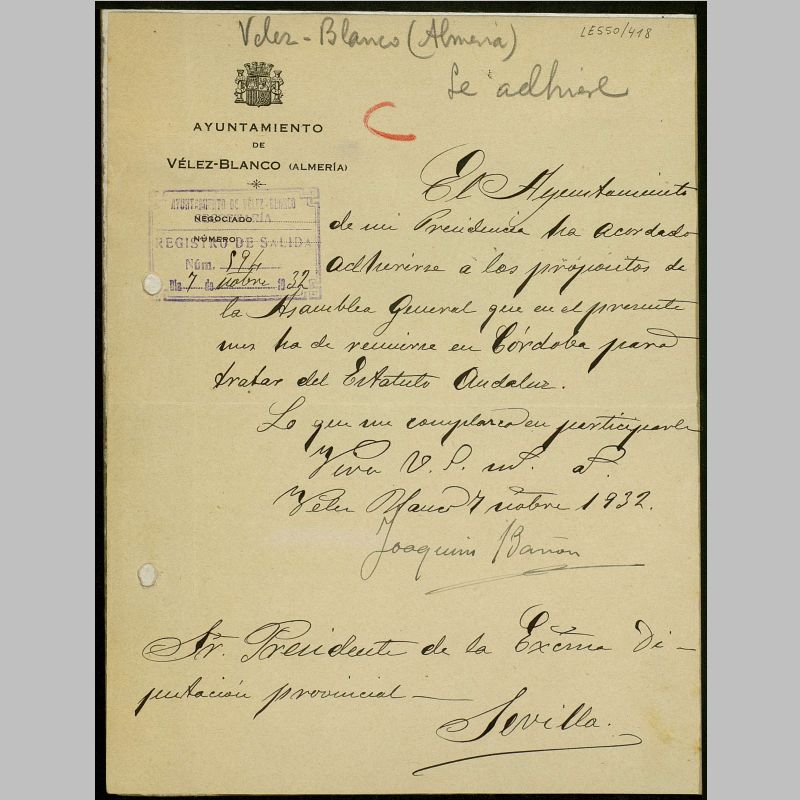 Velez-Blanco (Almería)
LE550/418
Se adhiere
AYUNTAMIENTO
DE
VÉLEZ-BLANCO (ALMERÍA)
AYUNTAMIENTO DE VÉLEZ-BLANCO
NEGOCIADO
NÚMERO
REGISTRO DE SALIDA
Núm. 594
Día 7 de nobre 1932
El Ayuntamiento
de mi Presidencia ha acordado
adherirse a los propósitos de
la Asamblea General que en el presente
mes ha de reunirse en Córdoba para
tratar del Estatuto Andaluz.
Lo que me complazco en participarle
Viva V. S. m. a.
Velez Blanco 7 nobre 1932.
Joaquin Bañon
Sr. Presidente de la Excma Di-
putación provincial—
Sevilla.